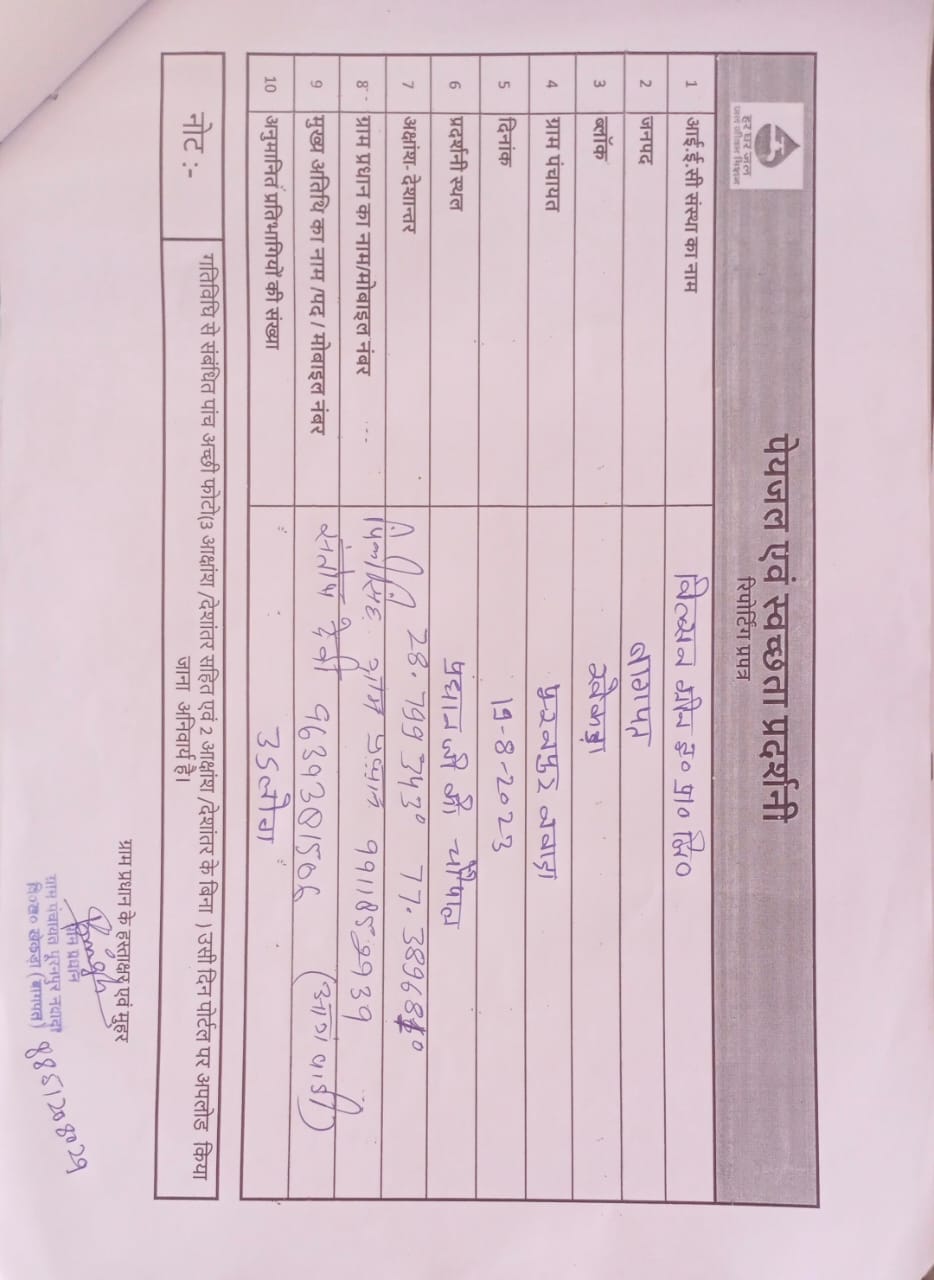 हर घर जल
जल जीवन मिशन
पेयजल एवं स्वच्छता प्रदर्शनी
रिपोर्टिंग प्रपत्र
1 आई.ई.सी संस्था का नाम प्रा० लि०
2 जनपद बागपत
3 ब्लॉक खेकड़ा
4 ग्राम पंचायत पूरनपुर नवादा
5 दिनांक 19-8-2023
6 प्रदर्शनी स्थल प्रधान जी की चौपाल
7 अक्षांश- देशान्तर 28.799343° 77.38968
8 ग्राम प्रधान का नाम/मोबाइल नंबर ग्राम प्रधान
9 मुख्य अतिथि का नाम /पद / मोबाइल नंबर देवी
10 अनुमानित प्रतिभागियों की संख्या
नोट :- गतिविधि से संबंधित पांच अच्छी फोटो(3 आक्षांश /देशांतर सहित एवं 2 आक्षांश /देशांतर के बिना ) उसी दिन पोर्टल पर अपलोड किया
जाना अनिवार्य है।
ग्राम प्रधान के हस्ताक्षर एवं मुहर
ग्राम पंचायत पूरनपुर नवादा
वि०ख० खेकड़ा (बागपत)